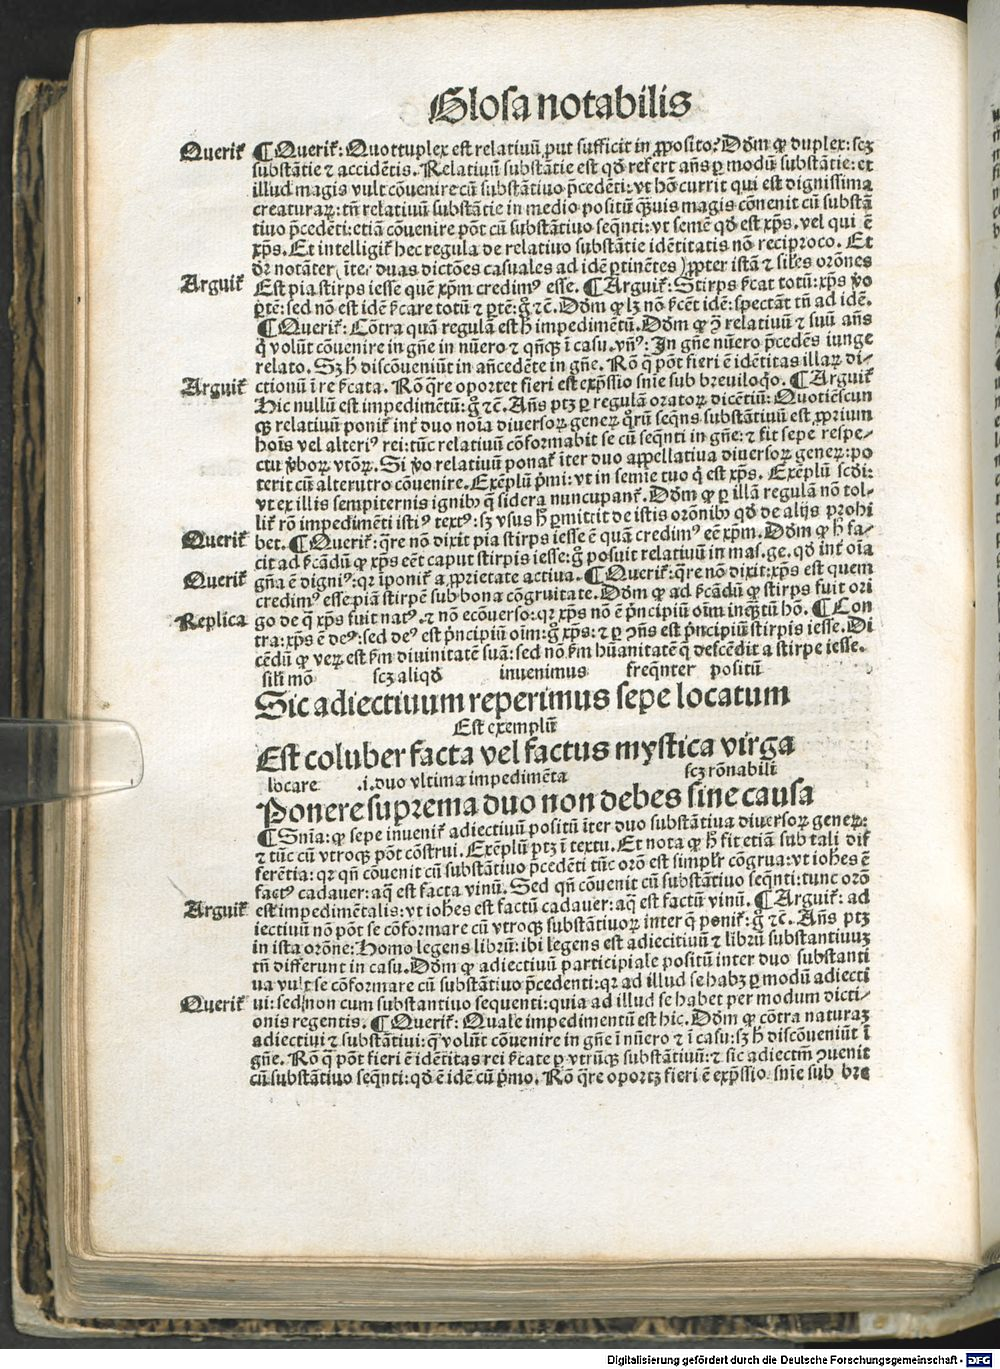 Glosa notabilis
Querit̄ ¶ Querit̄: Quottuplex est relatiuū put sufficit in ꝓposito? Dōm ꝙ duplex: scꝫ
substātie ⁊ accidētis. Relatiuū substātie est qd̄ refert an̄s ꝑ modū substātie: et
illud magis vult cōuenire cū substātiuo p̄cedēti: vt hō currit qui est dignissima
creaturaꝝ: tn̄ relatiuū substātie in medio positū ꝙ̄uis magis cōnenit cū substā
tiuo p̄cedēti: etiā cōuenire pōt cū substātiuo seqn̄ti: vt semē qd̄ est xp̄s. vel qui ē
xp̄s. Et intelligit̄ hec regula de relatiuo substātie idētitatis nō reciproco. Et
dr̄ notāter (īter duas dictōes casuales ad idē ꝑtinētes) ꝓpter istā ⁊ siles orōnes
Arguit̄ Est pia stirps iesse quē xp̄m credimꝰ esse. ¶ Arguit̄: Stirps p̄cat totū: xp̄s ꝟo
ꝑtē: sed nō est idē p̄care totū ⁊ ꝑtē: g̊ ⁊c̄. Dōm ꝙ lꝫ nō p̄cēt idē: spectāt tn̄ ad idē.
¶ Querit̄: Cōtra quā regulā est h̄ impedimētū. Dōm ꝙ ꝯ relatiuū ⁊ suū an̄s
q̇ volūt cōuenire in gn̄e in nūero ⁊ qn̄qꝫ ī casu. vn̄ꝰ: In gn̄e nūero p̄cedēs iunge
relato. Sꝫ h̄ discōueniūt in an̄cedēte in gn̄e. Rō q̄ pōt fieri ē idētitas illaꝝ di⸗
Arguit̄ ctionū ī re p̄cata. Rō q̄re oportet fieri est exp̄ssio sn̄ie sub breuiloq̇o. ¶ Arguit̄
Hic nullū est impedimētū: g̊ ⁊c̄. An̄s ptꝫ ꝑ regulā oratoꝝ dicētiū: Quotiēscun
qꝫ relatiuū ponit̄ int̄ duo noīa diuersoꝝ generꝝ quoꝝ seqn̄s substātiuū est ꝓprium
hoīs vel alteriꝰ rei: tūc relatiuū cōformabit se cū seqn̄ti in gn̄e: ⁊ fit sepe respe⸗
ctu ꝟboꝝ vtōꝝ. Si ꝟo relatiuū ponat̄ īter duo appellatiua diuersoꝝ generꝝ: po
terit cū alterutro cōuenire. Exēplū p̄mi: vt in semīe tuo q̇ est xp̄s. Exēplū scd̄i:
vt ex illis sempiternis ignibꝰ q̄ sidera nuncupant̄. Dōm ꝙ ꝑ illā regulā nō tol⸗
lit̄ rō impedimēti istiꝰ textꝰ: sꝫ vsus h̄ ꝑmittit de istis orōnibꝰ qd̄ de alijs prohi
Querit̄ bet. ¶ Querit̄: q̄re nō dixit pia stirps iesse ē quā credimꝰ eē xp̄m. Dōm ꝙ h̄ fa⸗
cit ad p̄cādū ꝙ xp̄s eēt caput stirpis iesse: g̊ posuit relatiuū in mas. ge. qd̄ int̄ oīa
Querit̄ gn̄a ē digniꝰ: qꝛ īponit̄ a ꝓprietate actiua. ¶ Querit̄: q̄re nō dixit: xp̄s est quem
credimꝰ esse piā stirpē sub bona cōgruitate. Dōm ꝙ ad p̄cādū ꝙ stirps fuit ori
Replica go de q̄ xp̄s fuit natꝰ. ⁊ nō ecōuerso: qꝛ xp̄s nō ē p̄ncipiū oīm inqꝫtū hō. ¶ Con
tra: xp̄s ē deꝰ: sed deꝰ est p̄ncipiū oīm: g̊ xp̄s: ⁊ ꝑ ꝯn̄s est p̄ncipiū stirpis iesse. Di
cēdū ꝙ veꝝ est p̄m diuinitatē suā: sed nō p̄m hūanitatē q̄ descēdit a stirpe iesse.
sili mō scꝫ aliqd̄ inuenimus freqn̄ter positū
Sic adiectiuum reperimus sepe locatum
Est exemplū
Est coluber facta vel factus mystica virga
locare .i. duo vltima impedimēta scꝫ rōnabili
Ponere suprema duo non debes sine causa
¶ Sn̄ia: ꝙ sepe inuenit̄ adiectiuū positū īter duo substātiua diuersoꝝ generꝝ:
⁊ tūc cū vtroqꝫ pōt cōstrui. Exēplū ptꝫ ī textu. Et nota ꝙ h̄ fit etiā sub tali dif
ferētia: qꝛ qn̄ cōuenit cū substātiuo p̄cedēti tūc orō est simplr̄ cōgrua: vt ioh̄es ē
factꝰ cadauer: aq̄ est facta vinū. Sed qn̄ cōuenit cū substātiuo seqn̄ti: tunc orō
Arguit̄ est impedimētalis: vt ioh̄es est factū cadauer: aq̄ est factū vinū. ¶ Arguit̄: ad
iectiuū nō pōt se cōformare cū vtroqꝫ substātiuoꝝ inter q̄ ponit̄: g̊ ⁊c̄. An̄s ptꝫ
in ista orōne: Homo legens librū: ibi legens est adiecitiuū ⁊ librū substantiuuꝫ
tn̄ differunt in casu. Dōm ꝙ adiectiuū participiale positū inter duo substanti
ua vult se cōformare cū substātiuo p̄cedenti: qꝛ ad illud se habꝫ ꝑ modū adiecti
Querit̄ ui: sed non cum substantiuo sequenti: quia ad illud se habet per modum dicti⸗
onis regentis. ¶ Querit̄: Quale impedimentū est hic. Dōm ꝙ cōtra naturaꝫ
adiectiui ⁊ substātiui: q̄ volūt cōuenire in gn̄e ī nūero ⁊ ī casu: sꝫ h̄ discōueniūt ī
gn̄e. Rō q̄ pōt fieri ē idētitas rei p̄cate ꝑ vtrūqꝫ substātiuū: ⁊ sic adiectm̄ ꝯuenit
cū substātiuo seqn̄ti: qd̄ ē idē cū p̄mo. Rō q̄re oportꝫ fieri ē exp̄ssio sn̄ie sub bre
Digitalisierung gefördert durch die Deutsche Forschungsgemeinschaft - DFG